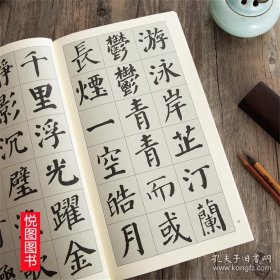 游泳岸芷汀蘭
鬱鬱青青而或
長煙一空皓月
千里浮光躍金
影沉璧
悦图图书
孔夫子旧书网